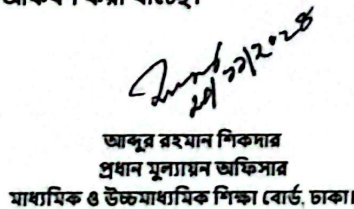 ২০/১১/২০২৪
আব্দুর রহমান শিকদার
প্রধান মূল্যায়ন অফিসার
মাধ্যমিক ও উচ্চমাধ্যমিক শিক্ষা বোর্ড, ঢাকা।